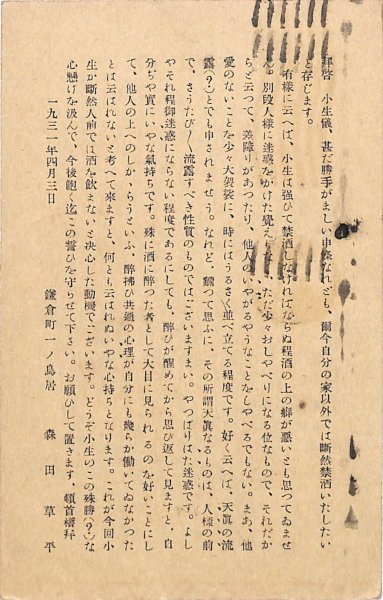 拝啓 小生儀、甚だ勝手がましい申条なれども、爾今自分の家以外では断然禁酒いたしたい
と存じます。
有様に云へば、小生は強ひて禁酒しなければならぬ程酒の上の癖が悪いとも思つてゐませ
ん。別段人様に迷惑をかけた覚えもない。ただ少々おしやべりになる位なもので、それだか
らと云つて、差障りがあつたり、他人のいやがるやうなことをしやべるでもない。まあ、他
愛のないことを少々大袈裟に、時にはうるさく並べ立てる程度です。好く云へば、天眞の流
露(?)とでも申されませう。なれど、飜つて思ふに、その所謂天眞なるものは、人様の前
で、さうたび〳〵流露すべき性質のものではございますまい。やつぱりはた迷惑です。よし
やそれ程御迷惑にならない程度であるにしても、醉ひが醒めてから思ひ返して見ますと、自
分ぢや實にいやな氣持ちです。殊に酒に醉つた者として大目に見られるのを好いことにし
て、他人の上へのしかゝらうといふ、醉拂ひ共通の心理が自分にも幾らか働いてゐなかつた
とは云はれないと考へて來ますと、何とも云はれぬいやな心持ちとなります。これが今回小
生が斷然人前では酒を飮まないと決心した動機でございます。どうぞ小生のこの殊勝(?)な
心懸けを汲んで、今後飽く迄この誓ひを守らせて下さい。お願ひして置きます。頓首稽拜
一九三一年四月三日
鎌倉町一ノ鳥居 森田草平